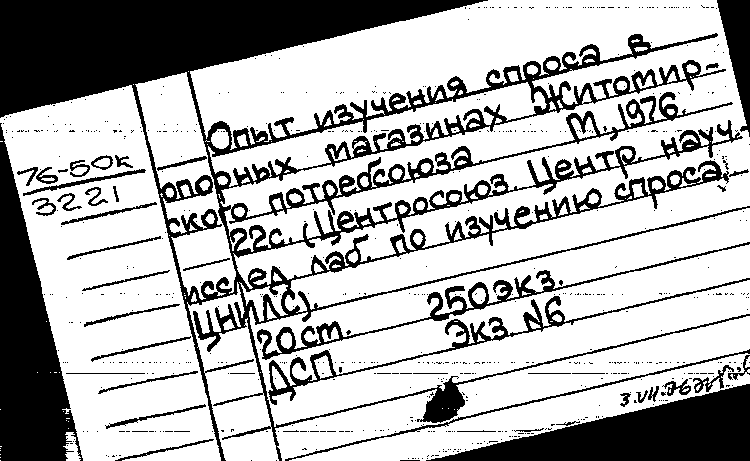 76-50к
3221
Опыт изучения спроса в
опорных магазинах Житомир-
ского потребсоюза. М., 1976.
22с. (Центросоюз. Центр. науч.-
исслед. лаб. по изучению спроса
ЦНИЛС).
20ст. 250экз.
ДСП. Экз. №6.
3.VII.76